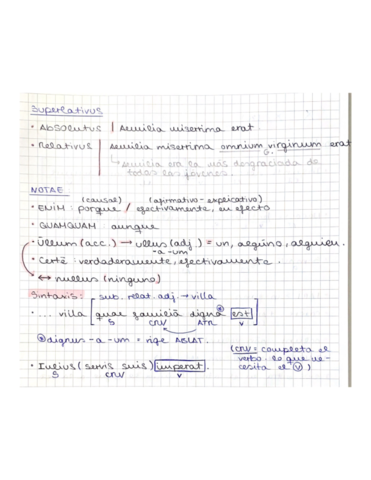 Superlativus
• Absolutus | Aemilia miserrima erat.
• Relativus | Aemilia miserrima omnium virginum erat
↳ Aemilia era la más desgraciada de
todas las jóvenes.
NOTAE
(causal) (afirmativo - explicativo)
• ENIM: porque / efectivamente, en efecto
• QUAMQUAM: aunque
• Ullum (acc.) → ullus (adj.) = un, alguno, alguien.
-a -um
• Certē: verdaderamente, efectivamente.
↔ nullus (ninguno)
Sintaxis: sub. relat. adj. → villa
• ... villa [quae familiā digna est]
S CRV Atr. V
* dignus -a -um = rige ABLAT.
(CRV = completa el
verbo. lo que ne-
cesita el V)
• Iulius (servis suis) imperat.
S CRV V